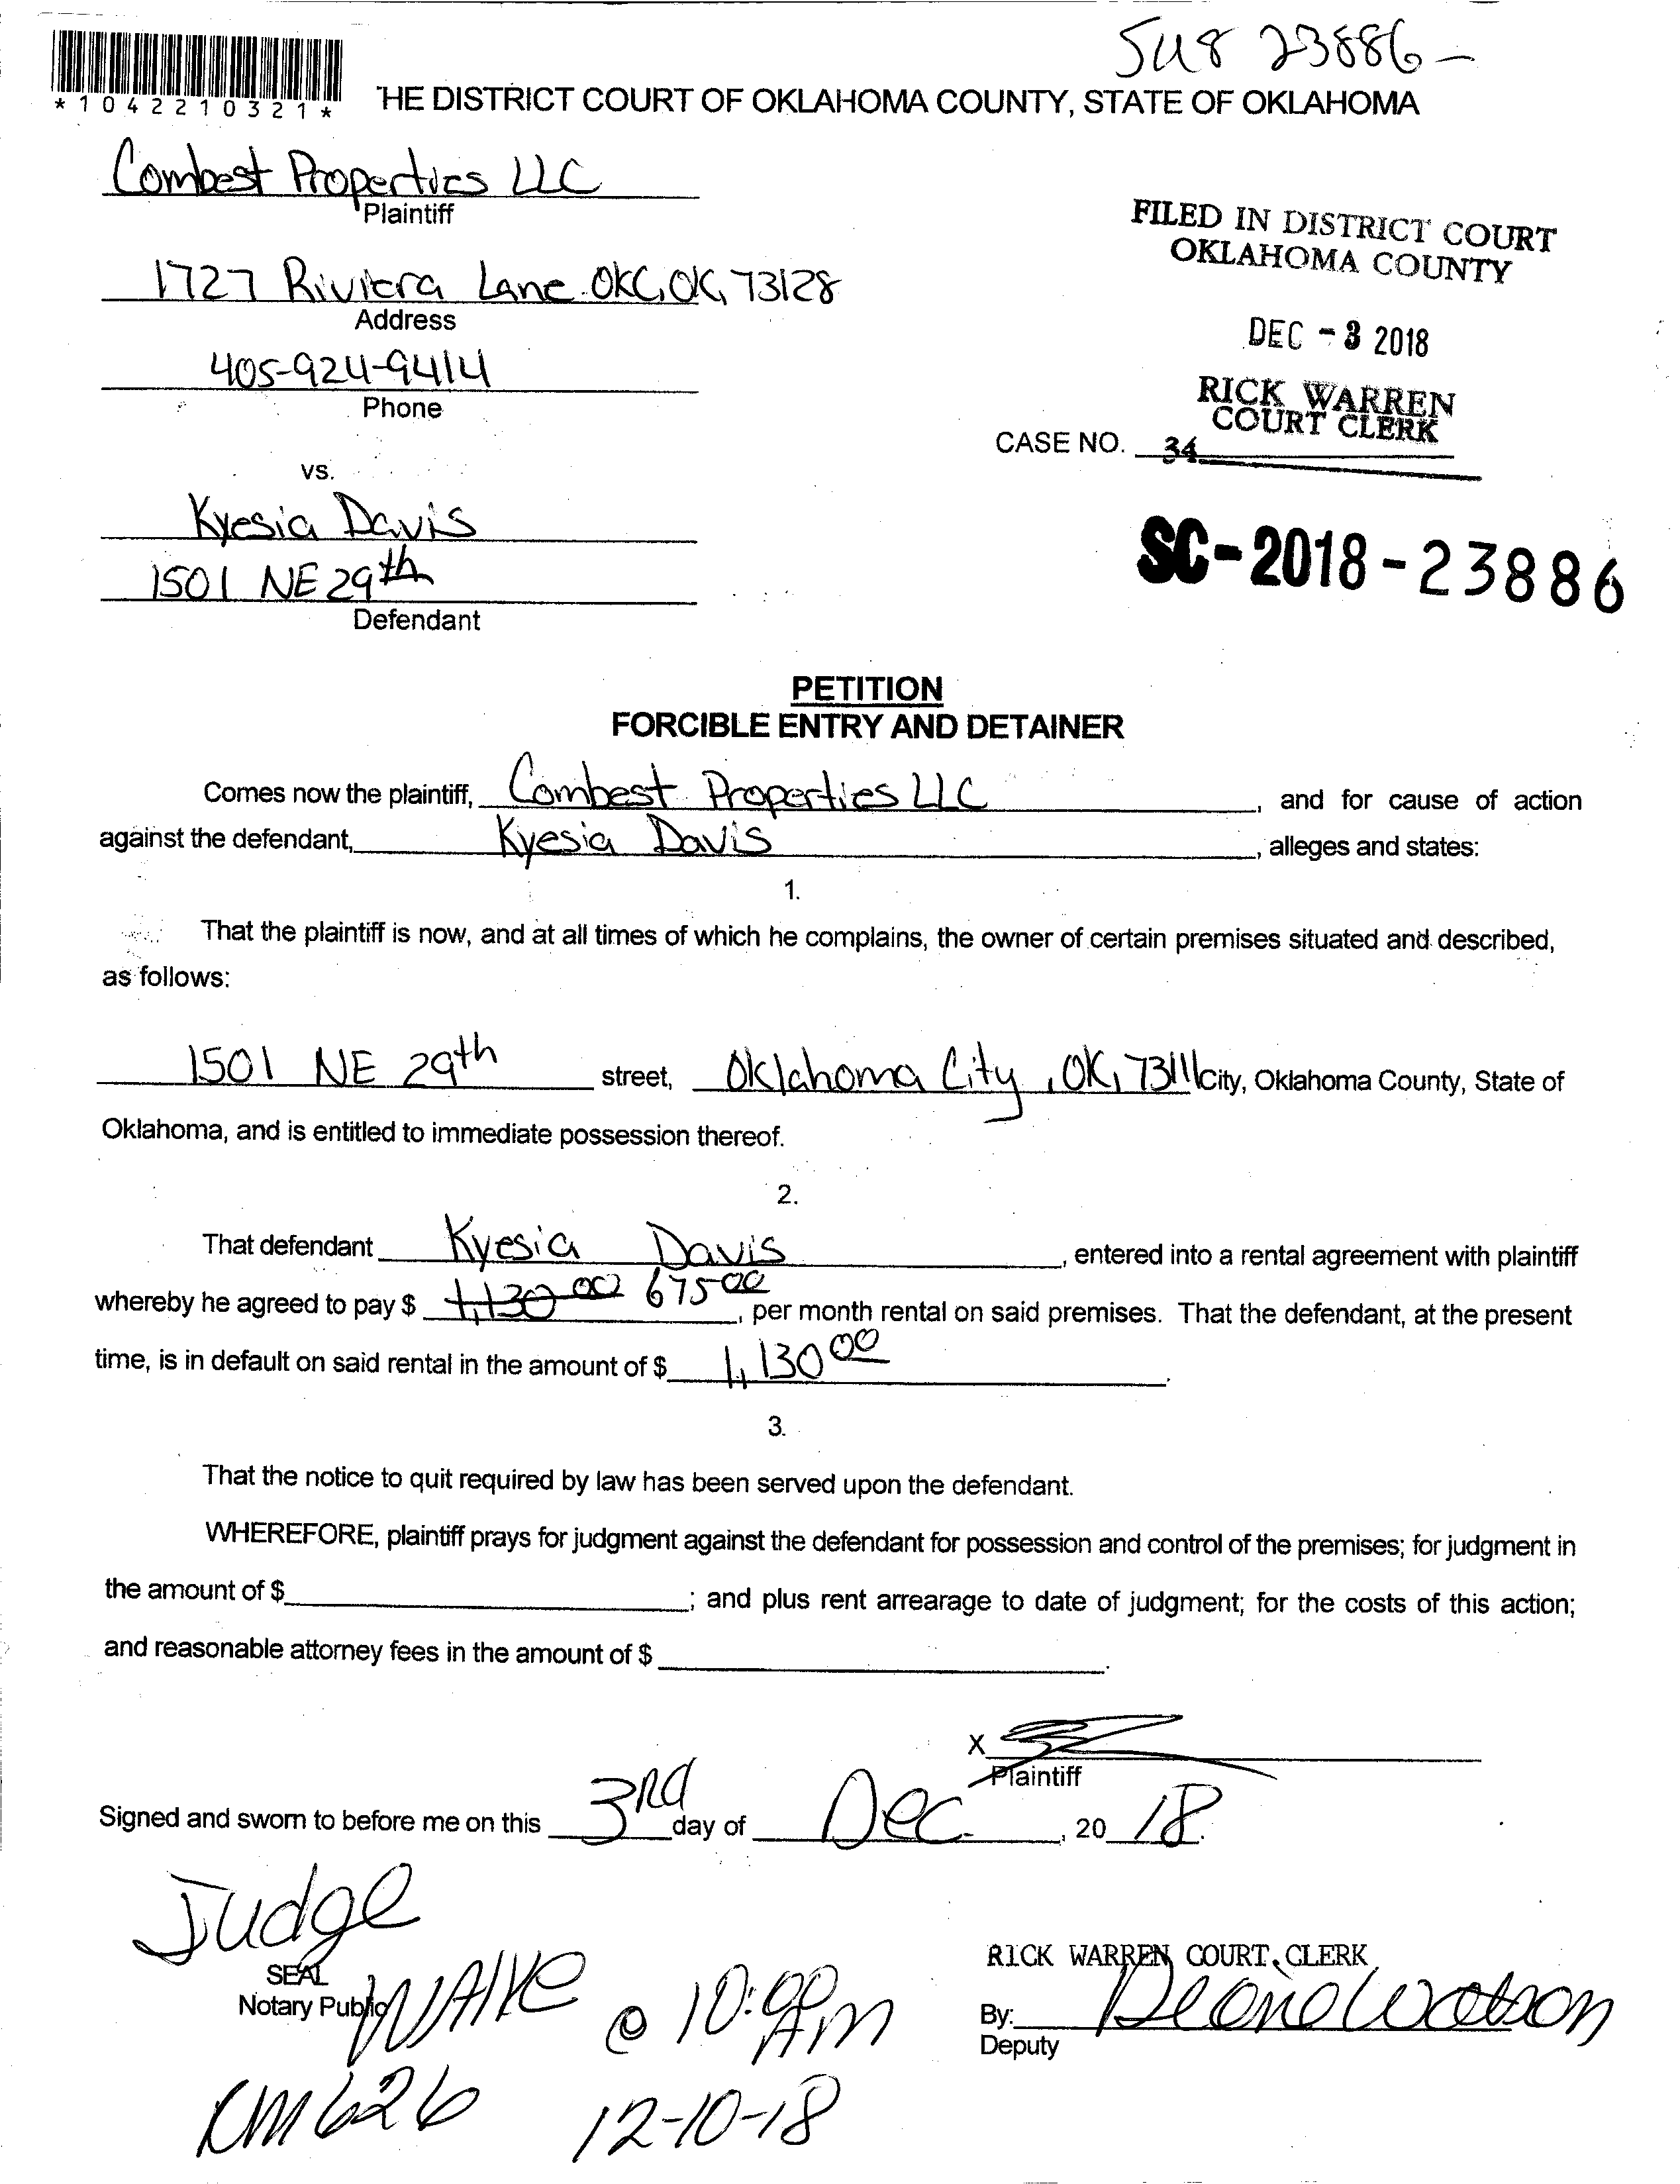 SU8 23886-
*1042210321*
HE DISTRICT COURT OF OKLAHOMA COUNTY, STATE OF OKLAHOMA
Combest Properties LLC
Plaintiff
1727 Riviera Lane OKC, OK, 73128
Address
405-924-9414
Phone
FILED IN DISTRICT COURT
OKLAHOMA COUNTY
DEC - 3 2018
RICK WARREN
COURT CLERK
CASE NO. 34
vs.
Kyesia Davis
1501 NE 29th
Defendant
SC-2018-23886
PETITION
FORCIBLE ENTRY AND DETAINER
Comes now the plaintiff, Combest Properties LLC, and for cause of action
against the defendant, Kyesia Davis, alleges and states:
1.
That the plaintiff is now, and at all times of which he complains, the owner of certain premises situated and described,
as follows:
1501 NE 29th street, Oklahoma City, OK, 73111 City, Oklahoma County, State of
Oklahoma, and is entitled to immediate possession thereof.
2.
That defendant Kyesia Davis, entered into a rental agreement with plaintiff
whereby he agreed to pay $ 1,130 00 675 00, per month rental on said premises. That the defendant, at the present
time, is in default on said rental in the amount of $ 1,130 00.
3.
That the notice to quit required by law has been served upon the defendant.
WHEREFORE, plaintiff prays for judgment against the defendant for possession and control of the premises; for judgment in
the amount of $ ; and plus rent arrearage to date of judgment; for the costs of this action;
and reasonable attorney fees in the amount of $ .
X
Plaintiff
Signed and sworn to before me on this 3rd day of Dec., 20 18.
Judge
SEAL
Notary Public
WAIKE @ 10:00 AM
RM 626 12-10-18
RICK WARREN, COURT CLERK
By: Deana Watson
Deputy